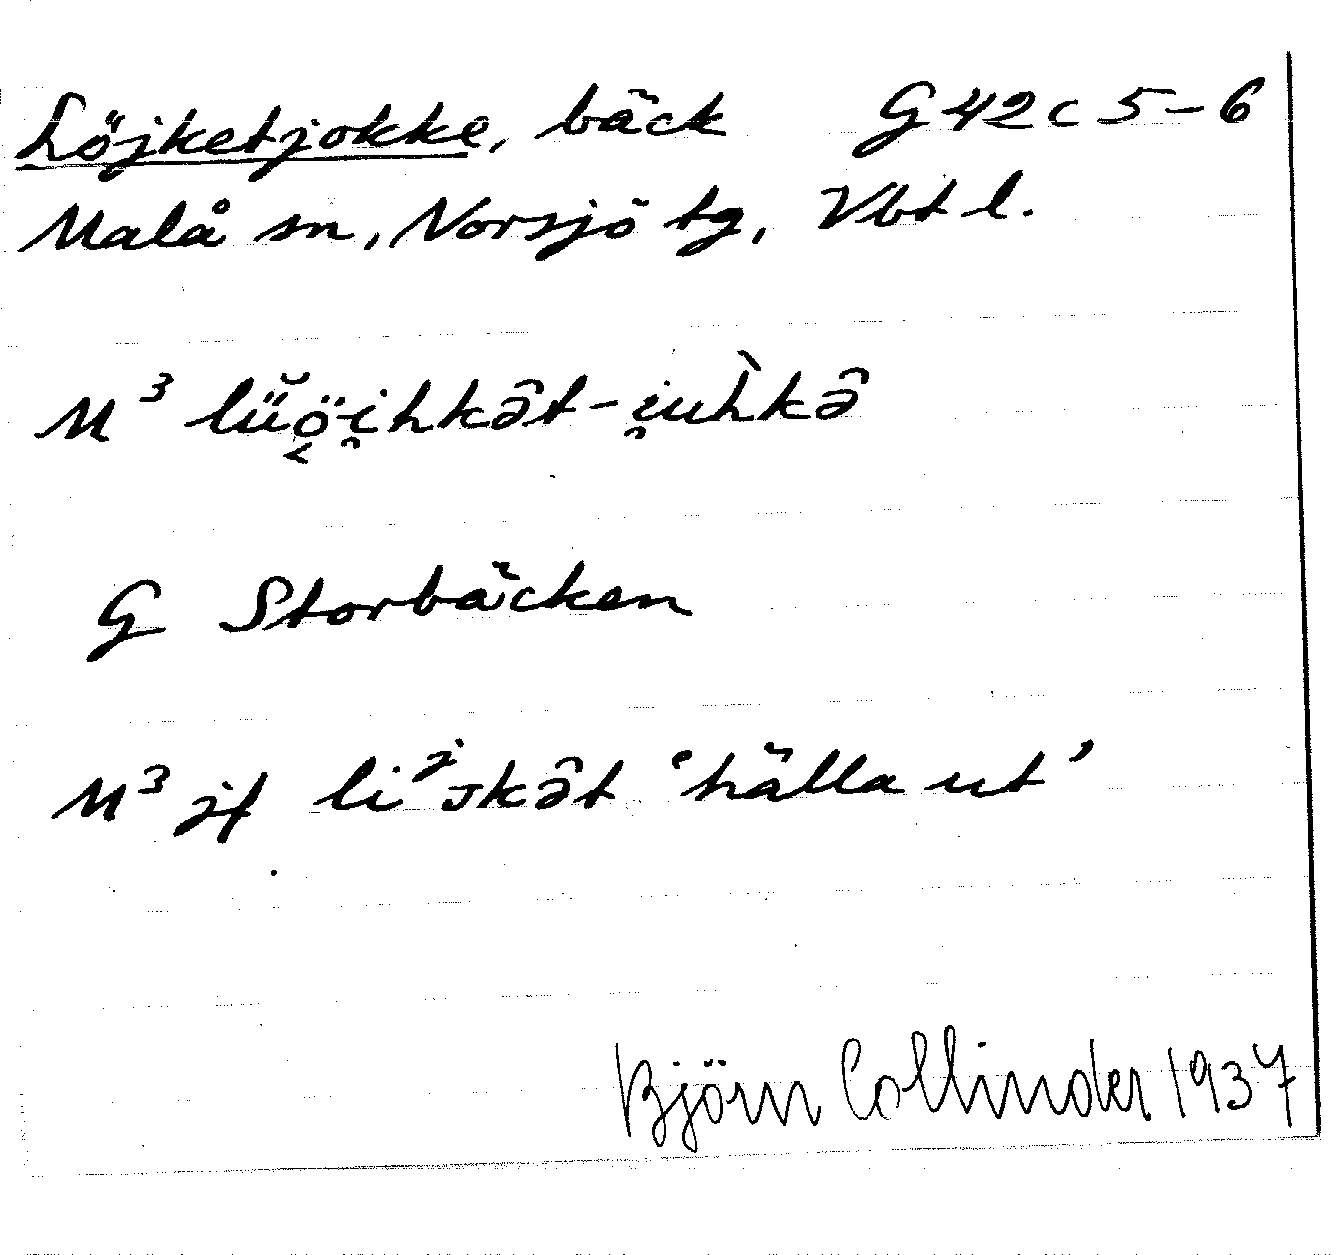 Löjketjokke, bäck G 42 c 5-6
Malå sn, Norsjö tg, Vbt l.
M³ lü̆ö̤i̯hkə̂t-i̯uh̀kə̂
G Storbäcken
M³ jf liʲjkə̂t 'hälla ut'
Björn Collinder 1937